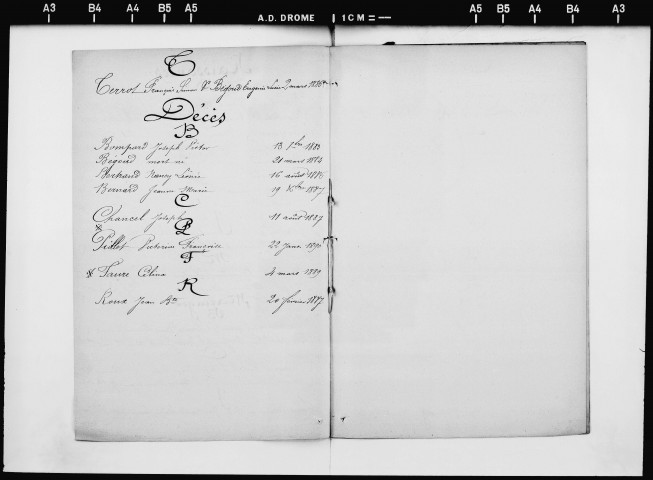 A3 B4 A4 B5 A5 A.D. DROME 1CM = A5 B5 A4 B4 A3
T
Terrot François Simon & Eugénie 2 mars 1886
Décès
B
Bompard Joseph Victor 13 1883
Bégoud mort né 21 mars 1884
Bertrand Nancy Léonie 16 août 1886
Bernard Jeanne Marie 19 Xbre 1887
C
Chancel Joseph 11 août 1889
P
Pillot Françoise 22 Janv. 1890
F
Faure Célina 4 mars 1889
R
Roux Jean Bte 20 février 1887